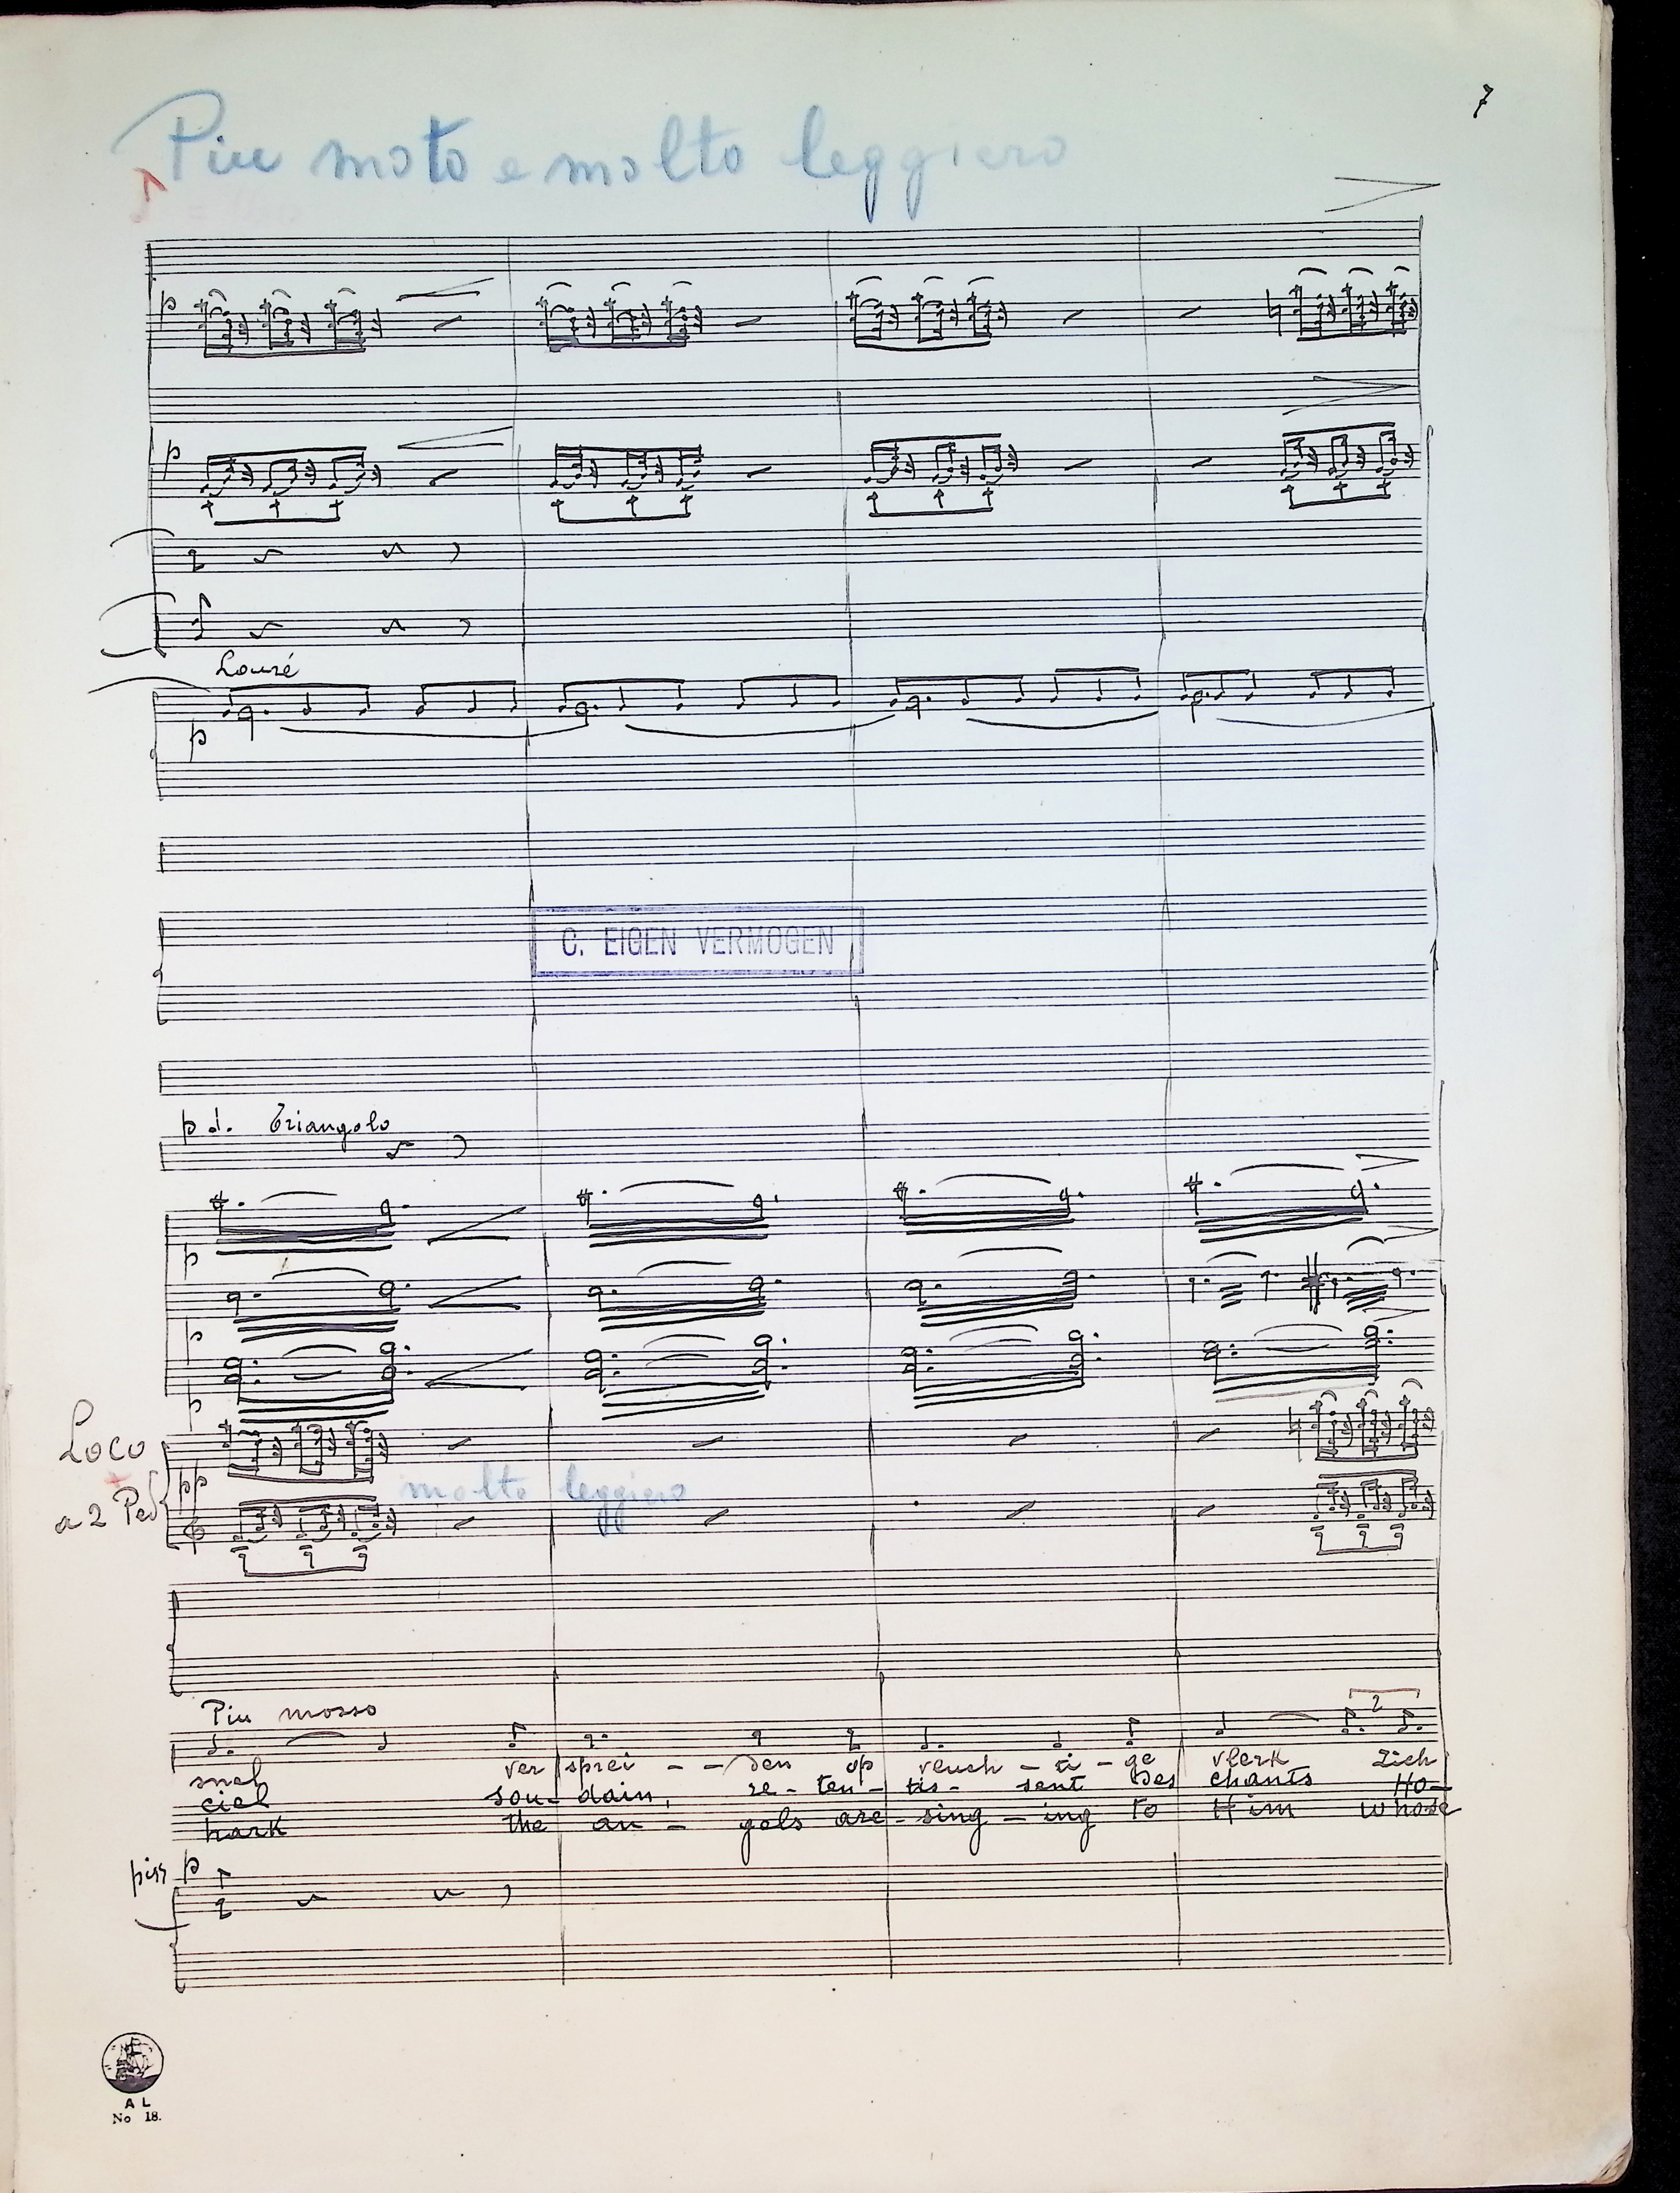 7
Piu moto e molto leggiero
p
p
Louré
p
C. EIGEN VERMOGEN
p d. Triangolo
p
p
p
Loco
pp
molto leggiero
a 2 Ped
Piu mosso
2
snel ver sprei - - den op vluch - ti - ge vlerk zich
ciel sou - dain, re - ten - tis - sent des chants Ho-
hark the an - gels are - sing - ing to Him whose
pizz p
A L
No 18.